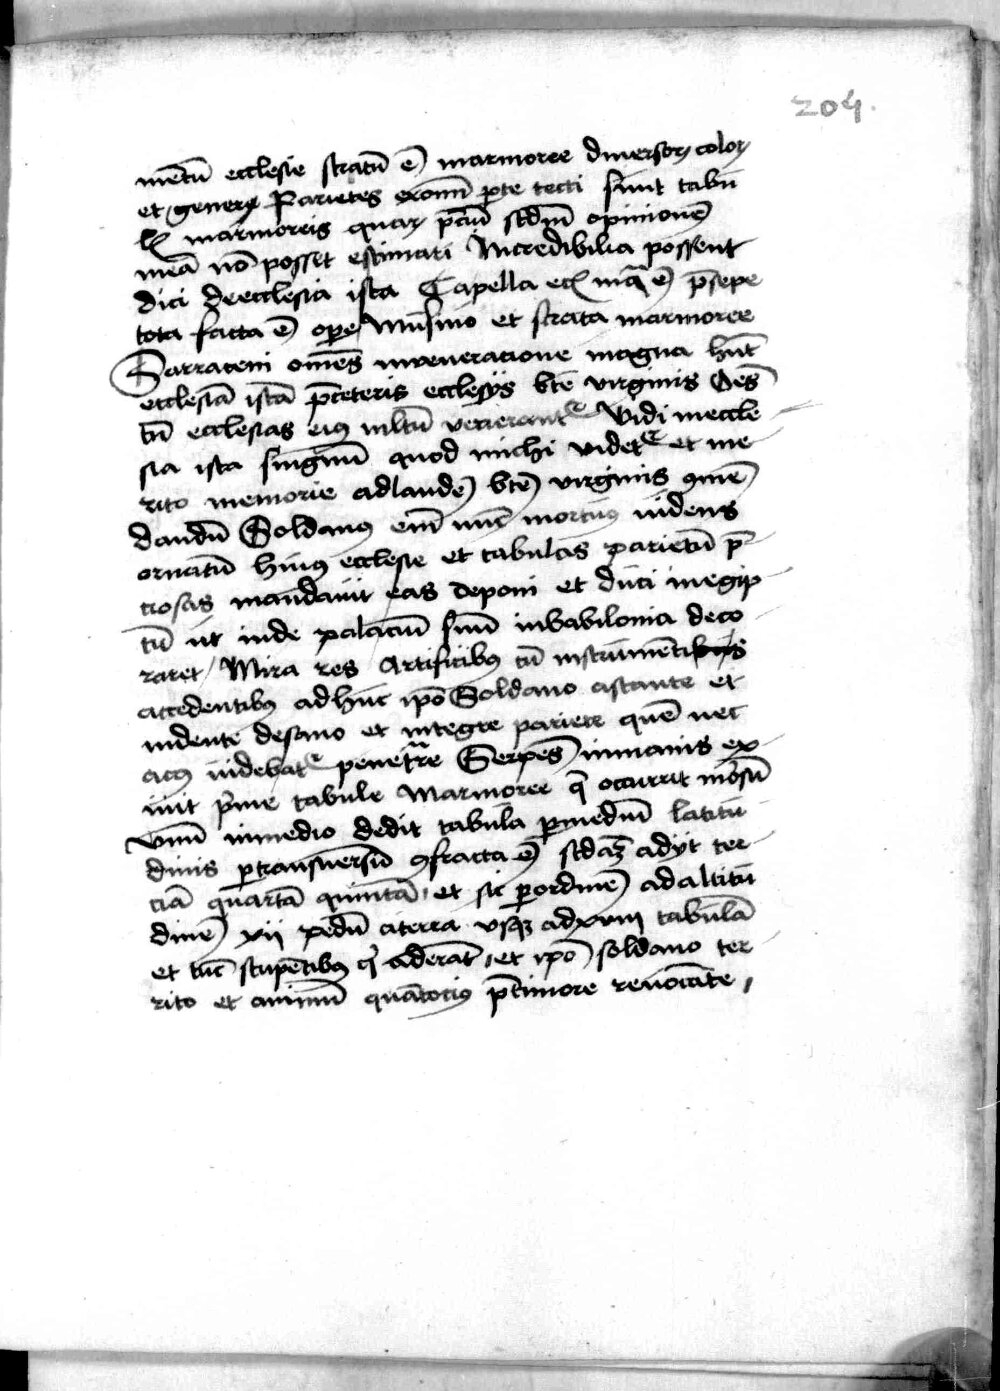 204.
mētū ecclesie stratū ē marmore diuersoꝝ coloꝝ
et geneꝝ Parietes ex omī pte tecti sunt tabu
lꝭ marmoreis quaꝝ pᵉciū scdm̄ opinionē
meā nō posset estimari Incredibilia possent
dici de ecclesia ista Capella eciā ī qua ē pᵉsepe
tota facta ē ope Musiuo et strata marmore
Sarraceni omēs in veneracione magna hn̄t
ecclesiā istā pᵉ ceteris ecclesijs bte virginis Oēs
tn̄ ecclesias eiꝰ mltū venerantʳ Vidi in eccle
sia ista signum quod michi videtʳ et me
rito memorie ad laudē btē virginis ꝯmē
dandū Soldanꝰ em̄ nūc mortuus uidens
ornatū huiꝰ ecclesie et tabulas parietū pᵉ
ciosas mandauit eas deponi et duci in egip
tū ut inde palaciū suū in babilonia deco
raret Mira res Artificibꝰ cū instrumētis
accedentibꝰ ad huc ipō Soldano astante et
uidente de sano et integre pariete quē nec
acus uidebatʳ penetᵃre Serpēs inmanis ex
iuit pⁱme tabule Marmoree qᵉ occurrit morsū
vnū in medio dedit tabula p mediū latitu
dinis p transuersū ꝯfracta ē scdaꝫ adijt ter
ciā quartā quintā et sic p ordinē ad altitu
dinē xij pedū a terra vsqꝫ ad xviij tabulā
et tūc stupētibꝰ qⁱ aderāt et ipō soldano ter
rito et animū quātociꝰ pᵉ timore reuocāte